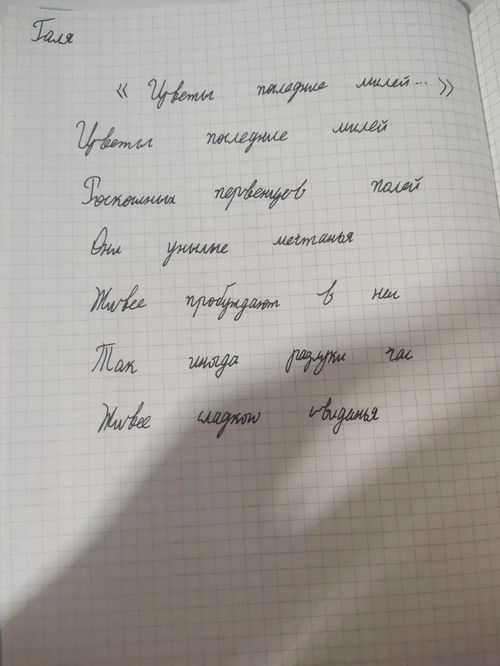 Галя
« Цветы последние милей... »
Цветы последние милей
Роскошных первенцов полей
Они унылые мечтанья
Живее пробуждают в неи
Так иногда разлуки час
Живее сладкого свиданья